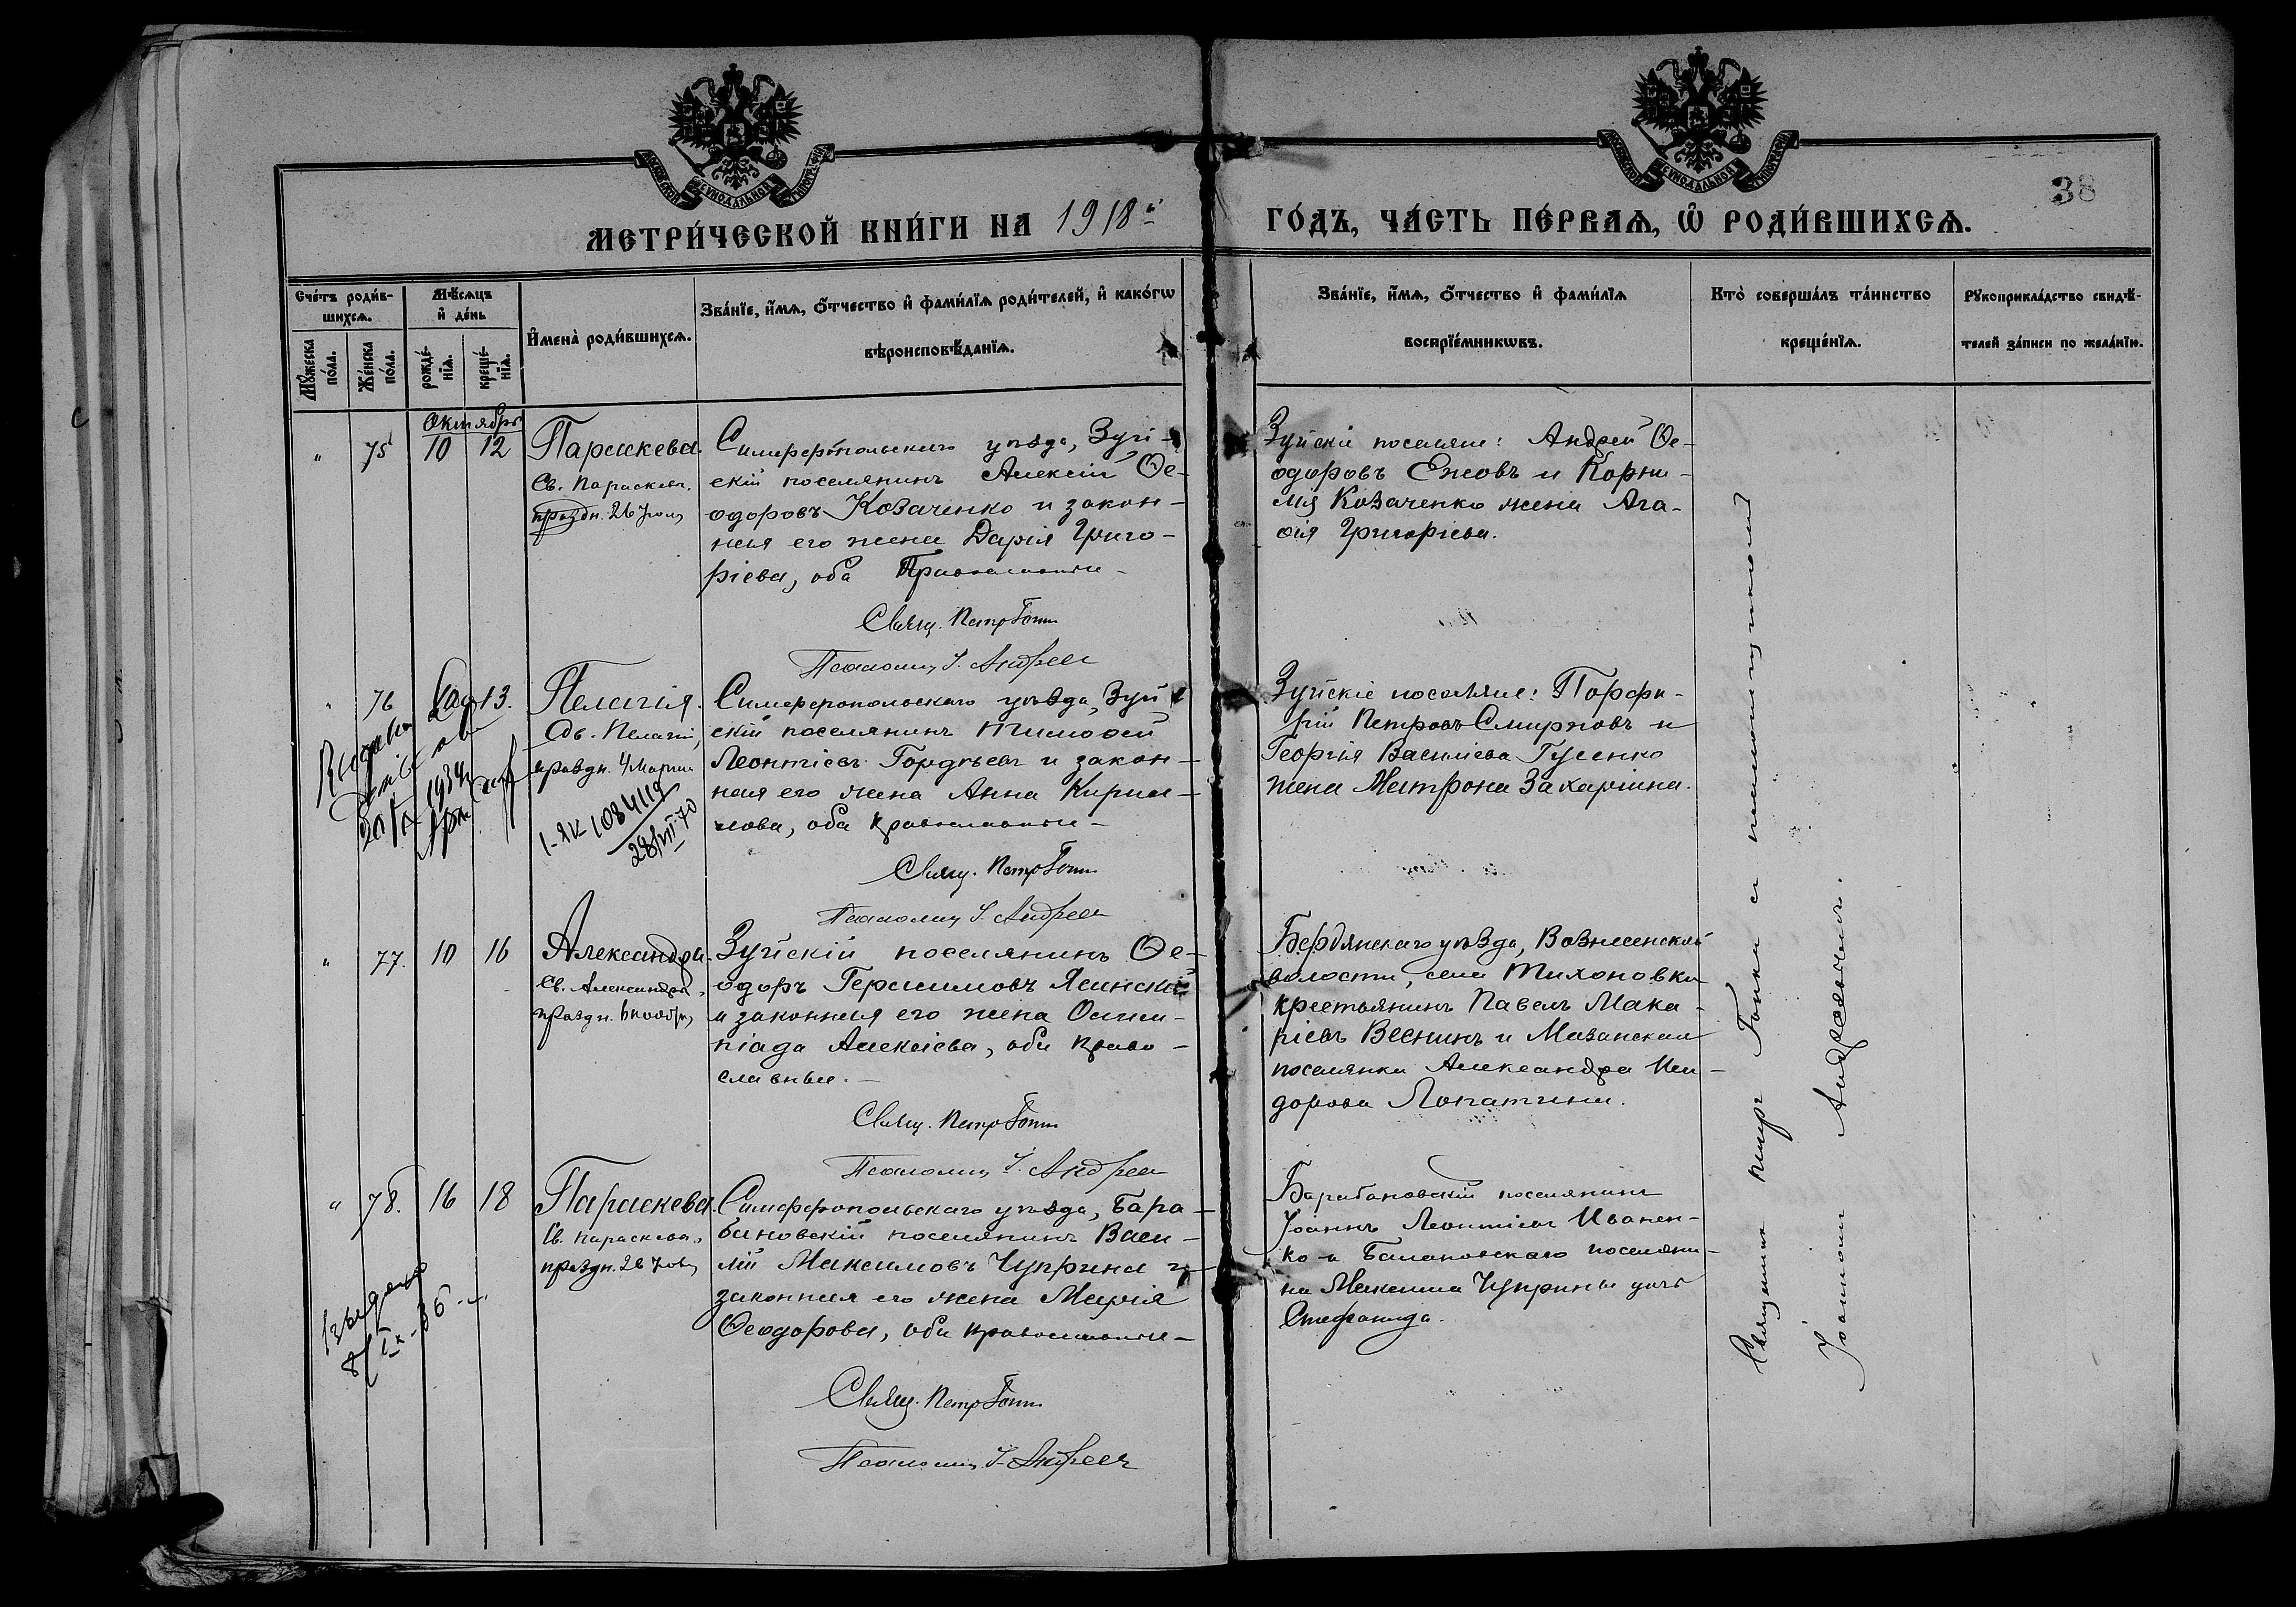 МОСКОВСКОЙ СѴНОДАЛЬНОЙ ТИПОГРАФІИ
МОСКОВСКОЙ СѴНОДАЛЬНОЙ ТИПОГРАФІИ
38
МЕТРИ́ЧЕСКОЙ КНИ́ГИ НА 1918й
ГО́ДЪ, ЧА́СТЬ ПЕ́РВАѦ, Ѡ҆ РОДИ́ВШИХСѦ.
Сче́тъ роди́в-
шихсѧ.
Мꙋ́жеска по́ла.
Же́нска по́ла.
Мѣ́сѧцъ
и҆ де́нь
рожде́-нїѧ.
креще́-нїѧ.
И҆мена̀ роди́вшихсѧ.
Зва́нїе, и҆́мѧ, ѻ҆́тчество и҆ фами́лїѧ роди́телей, и҆ како́гѡ
вѣроисповѣ́данїѧ.
Зва́нїе, и҆́мѧ, ѻ҆́тчество и҆ фами́лїѧ
воспрїе́мникѡвъ.
Кто̀ соверша́лъ та́инство
креще́нїѧ.
Рꙋкоприкла́дство свидѣ́-
телей за́писи по жела́нїю.
Октябрь
" 75 10 12
Параскева.
Св. Параскев.
праздн. 26 Іюля
Симферопольскаго уѣзда, Зуй-
скій поселянинъ Алексій Ѳе-
одоровъ Козаченко и закон-
ная его жена Дарія Григо-
ріева, оба Православные
Свящ. Петр Гоппа
Псаломщ. І. Андреев
Зуйскіе поселяне: Андрей Ѳе-
одоровъ Ежовъ и Корни-
лія Козаченко жена Ага-
ѳія Григоріева.
" 76 13.
Пелагія.
Св. Пелагіи,
праздн. 4 Марта
1934
I-ЯК 1084119
28/VII-70
Симферопольскаго уѣзда, Зуй
скій поселянинъ Тимоѳей
Леонтіевъ Гордѣевъ и закон-
ная его жена Анна Кирил-
лова, оба православные
Свящ. Петр Гоппа
Псаломщ. І. Андреев
Зуйскіе поселяне: Порфи-
рій Петровъ Смирновъ и
Георгія Василіева Гусенко
жена Матрона Захаріина.
" 77. 10 16
Александра.
Св. Александра,
праздн. 6 ноября
Зуйскій поселянинъ Ѳе-
одоръ Герасимовъ Ясинскій
и законная его жена Олим-
піада Алексіева, оба право-
славные.
Свящ. Петр Гоппа
Псаломщ. І. Андреев
Бердянскаго уѣзда, Вознесенской
волости, села Тихоновки
крестьянинъ Павелъ Мака-
ріевъ Веснинъ и Мазанская
поселянка Александра Иси-
дорова Лопатина.
" 78. 16 18
Параскева.
Св. Параскева,
праздн. 26 Іюля
Выдано
8/IX-36 г.
Симферопольскаго уѣзда, Бара-
бановскій поселянинъ Васи-
лій Максимовъ Чуприна и
законная его жена Марія
Ѳеодорова, оба православные
Свящ. Петр Гоппа
Псаломщ. І. Андреев
Барабановскій поселянинъ
Іоаннъ Леонтіевъ Иванен-
ко и Балановскаго поселяни-
на Максима Чуприны дочь
Стефанида.
Священник Петр Гоппа с псаломщиком
Іоанном Андреевым.